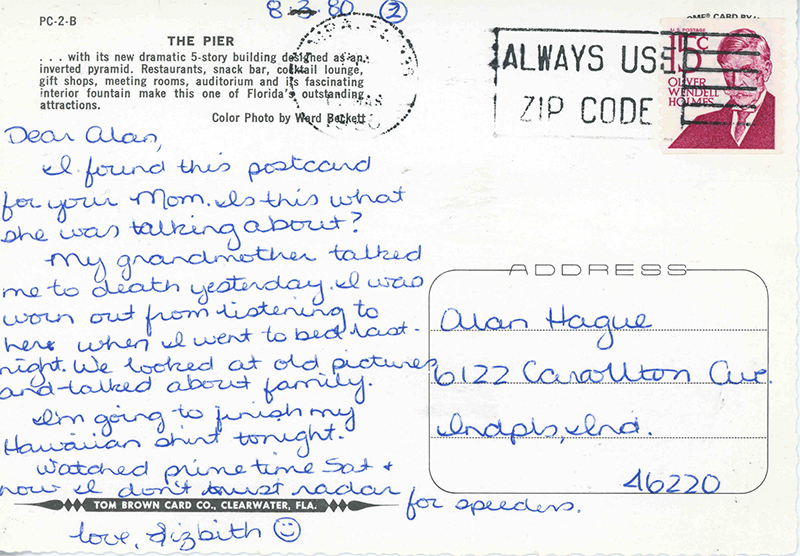 8 3 80 (2)
PC-2-B
THE PIER
. . . with its new dramatic 5-story building designed as an
inverted pyramid. Restaurants, snack bar, cocktail lounge,
gift shops, meeting rooms, auditorium and its fascinating
interior fountain make this one of Florida's outstanding
attractions.
Color Photo by Ward Beckett
ALWAYS USE
ZIP CODE
U.S. POSTAGE
15c
OLIVER
WENDELL
HOLMES
Dear Alan,
I found this postcard
for your Mom. Is this what
she was talking about?
My grandmother talked
me to death yesterday. I was
worn out from listening to
here when I went to bed last-
night. We looked at old pictures
and talked about family.
I'm going to finish my
Hawaiian shirt tonight.
Watched prime time Sat +
now I don't trust radar for speeders.
TOM BROWN CARD CO., CLEARWATER, FLA.
love, Lizbith
ADDRESS
Alan Hague
6122 Carollton Ave.
Indpls, Ind.
46220